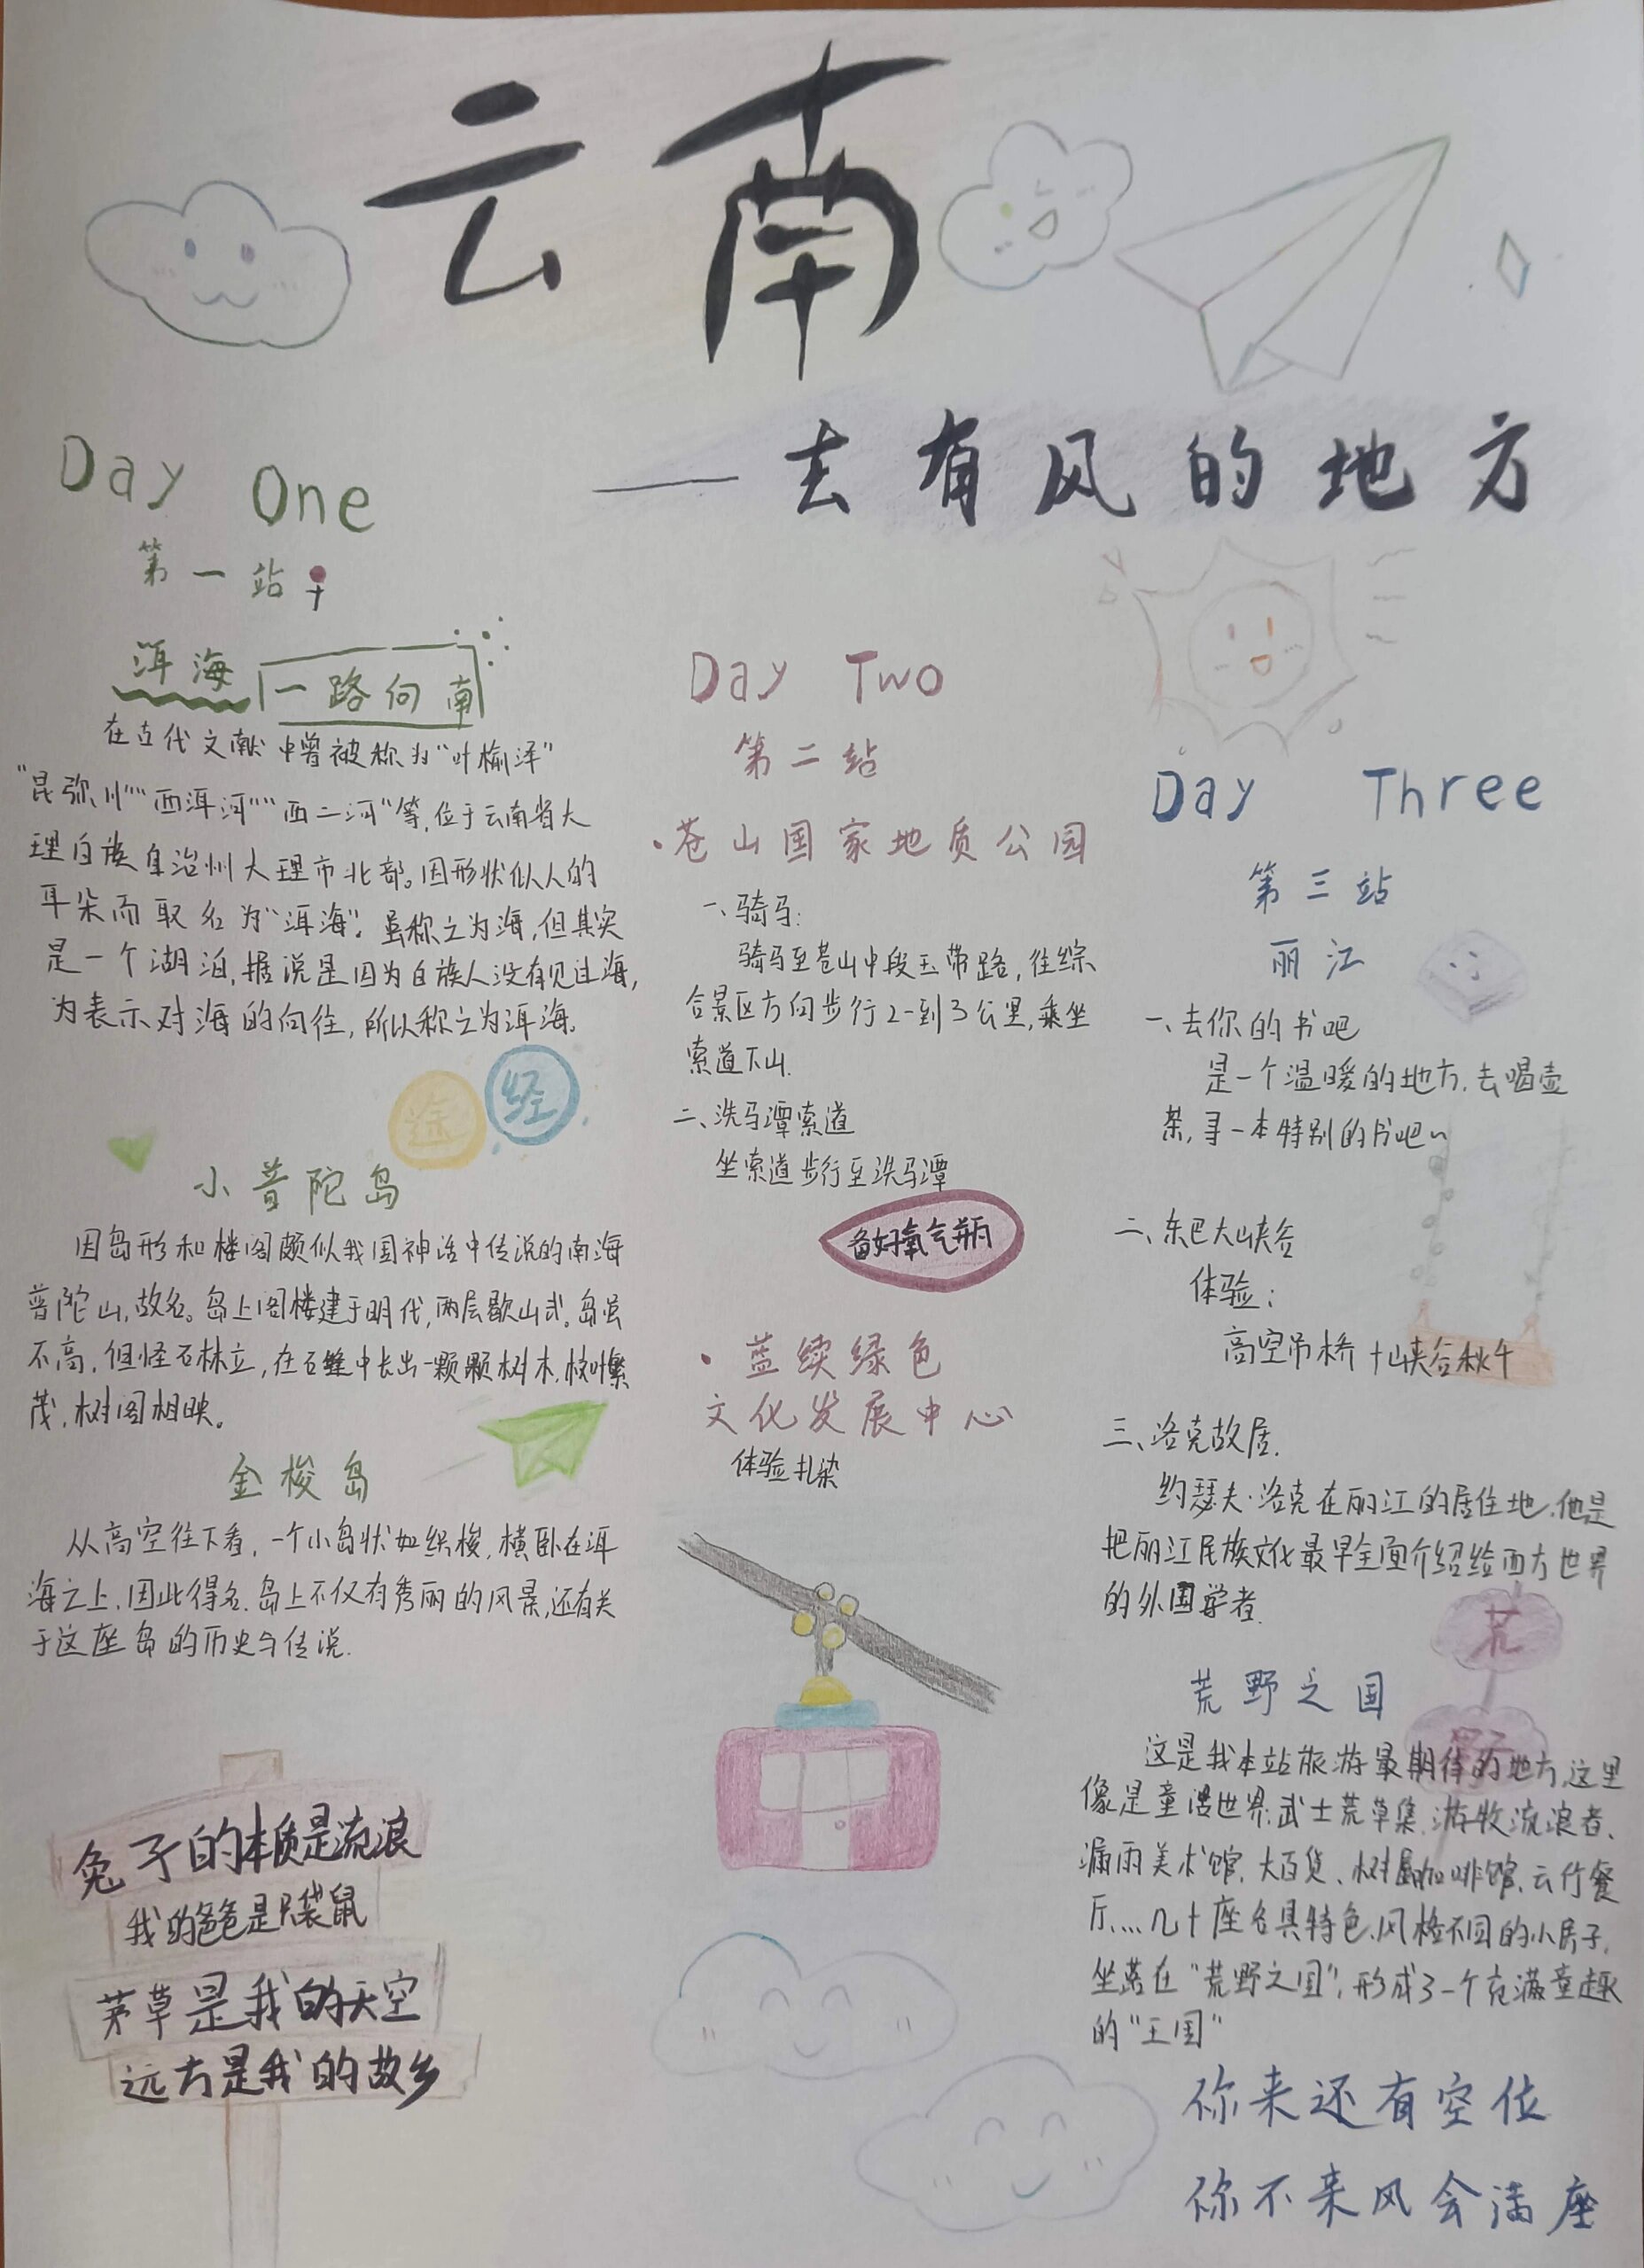 云南
——去有风的地方
Day One
第一站
洱海 一路向南
在古代文献中曾被称为“叶榆泽”
“昆弥川”“西洱河”“西二河”等,位于云南省大
理白族自治州大理市北部。因形状似人的
耳朵而取名为“洱海”。虽称之为海,但其实
是一个湖泊,据说是因为白族人没有见过海,
为表示对海的向往,所以称之为洱海。
途经
小普陀岛
因岛形和楼阁颇似我国神话中传说的南海
普陀山,故名。岛上阁楼建于明代,两层歇山式。岛虽
不高,但怪石林立,在石缝中长出一颗颗树木,枝叶繁
茂,树阁相映。
金梭岛
从高空往下看,一个小岛状如织梭,横卧在洱
海之上,因此得名.岛上不仅有秀丽的风景,还有关
于这座岛的历史与传说.
兔子的本质是流浪
我的爸爸是只袋鼠
茅草是我的天空
远方是我的故乡
Day Two
第二站
·苍山国家地质公园
一、骑马:
骑马至苍山中段玉带路,往综
合景区方向步行2-到3公里,乘坐
索道下山.
二、洗马潭索道
坐索道步行至洗马潭
备好氧气瓶
·蓝续绿色
文化发展中心
体验扎染
Day Three
第三站
丽江
一、去你的书吧
是一个温暖的地方.去喝壶
茶,寻一本特别的书吧~
二、东巴大峡谷
体验:
高空吊桥+峡谷秋千
三、洛克故居.
约瑟夫·洛克在丽江的居住地.他是
把丽江民族文化最早全面介绍给西方世界
的外国学者.
荒
野
荒野之国
这是我本站旅游最期待的地方,这里
像是童话世界:武士荒草集、游牧流浪者、
漏雨美术馆、大百货、树屋咖啡馆、云行餐
厅....几十座各具特色、风格不同的小房子,
坐落在“荒野之国”,形成了一个充满童趣
的“王国”
你来还有空位
你不来风会满座